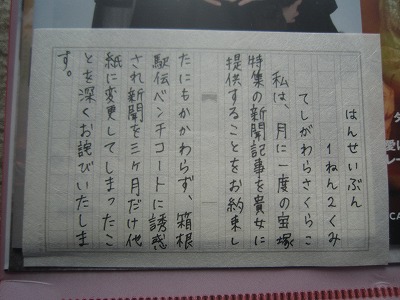 はんせいぶん
1ねん2くみ
てしがわらさくらこ
私は、月に一度の宝塚
特集の新聞記事を貴女に
提供することをお約束し
たにもかかわらず、箱根
駅伝ベンチコートに誘惑
され新聞を三ヶ月だけ他
紙に変更してしまったこ
とを深くお詫びいたしま
す。